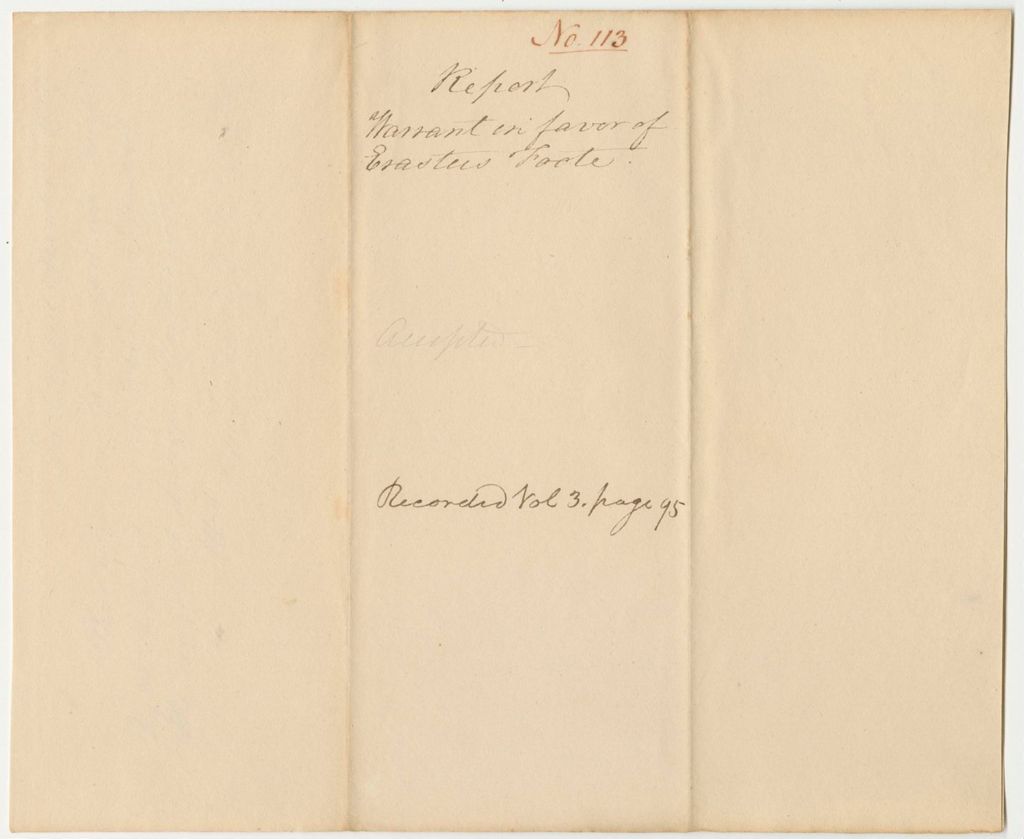 No. 113
Report
Warrant in favor of
Erastus Foote.
Accepted
Recorded Vol 3. page 95